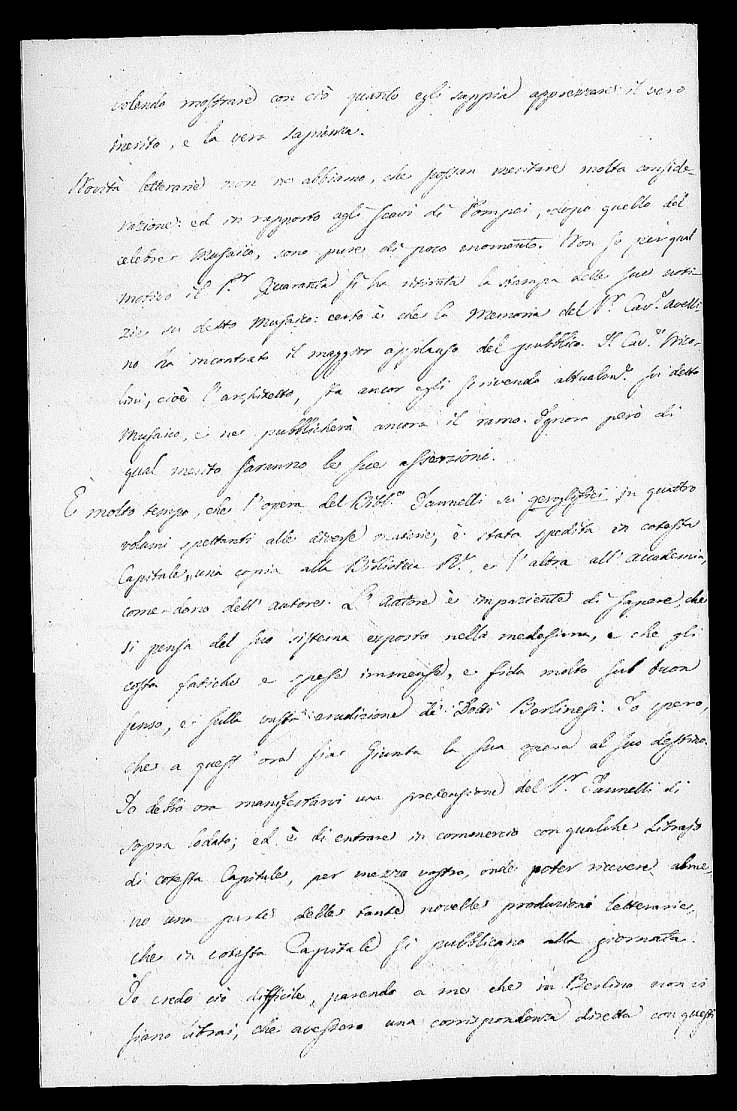 volendo mostrare con ciò quanto egli sappia apprezzare il vero
merito, e la vera sapienza.
Novità letterarie non ne abbiamo, che possan meritare molta conside-
razione: ed in rapporto agli scavi di Pompei, dopo quello del
celebre Musaico, sono pure di poco momento. Non so per qual
motivo il Sr. Quaranta si ha ritirata la stampa delle sue noti-
zie su detto Musaico: certo è che la Memoria del Sr. Cavr. Avelli-
no ha incontrato il maggior applauso del pubblico. Il Cavr. Nico-
lini, cioè l'architetto, sta ancor egli scrivendo attualmte. sul detto
Musaico, e ne pubblicherà ancora il ramo. Ignoro però di
qual merito saranno le sue asserzioni.
È molto tempo, che l'opera del Bibl.o Jannelli sui geroglifici in quattro
volumi spettanti alle diverse materie, è stata spedita in cotesta
Capitale, una copia alla Biblioteca R.e, e l'altra all'Accademia,
come dono dell'autore. L'Autore è impaziente di sapere, che
si pensa del suo sistema esposto nella medesima, e che gli
costa fatiche e spese immense, e fida molto sul buon
senso, e sulla vasta erudizione de' Dotti Berlinesi. Io spero,
che a quest'ora sia giunta la sua opera al suo destino.
Io debbo ora manifestarvi una pretensione del Sr. Jannelli di
sopra lodato; ed è di entrare in commercio con qualche Librajo
di cotesta Capitale, per mezzo vostro, onde poter ricevere alme-
no una parte delle tante novelle produzioni letterarie,
che in cotesta Capitale si pubblicano alla giornata.
Io credo ciò difficile, parendo a me che in Berlino non vi
siano Librai, che avessero una corrispondenza diretta con questi